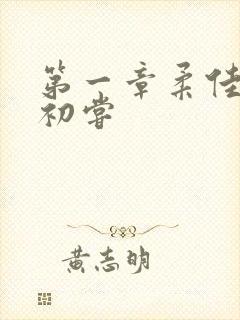 第一章柔佳
初尝
黄志明